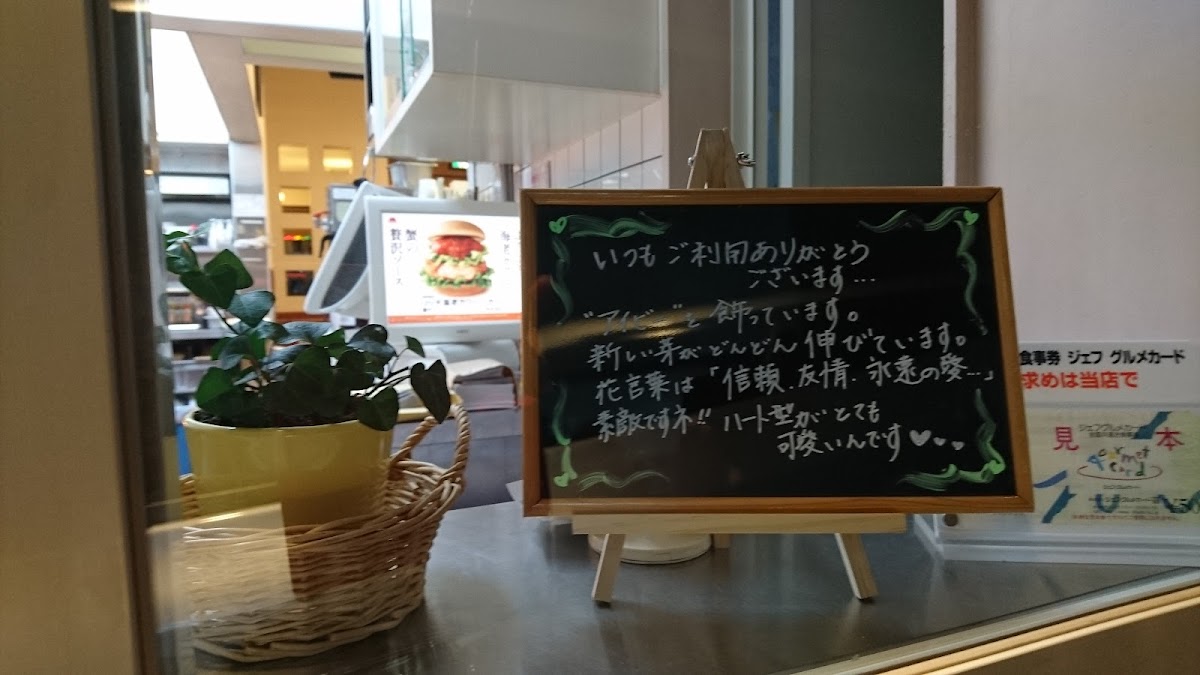 いつもご利用ありがとう
ございます…
"アイビー"を飾っています。
新しい芽がどんどん伸びています。
花言葉は「信頼.友情.永遠の愛…」
素敵ですネ!! ハート型がとても
可愛いんです
蟹の
贅沢ソース
食事券 ジェフ グルメカード
求めは当店で
ジェフグルメカード
見本
gourmet
card